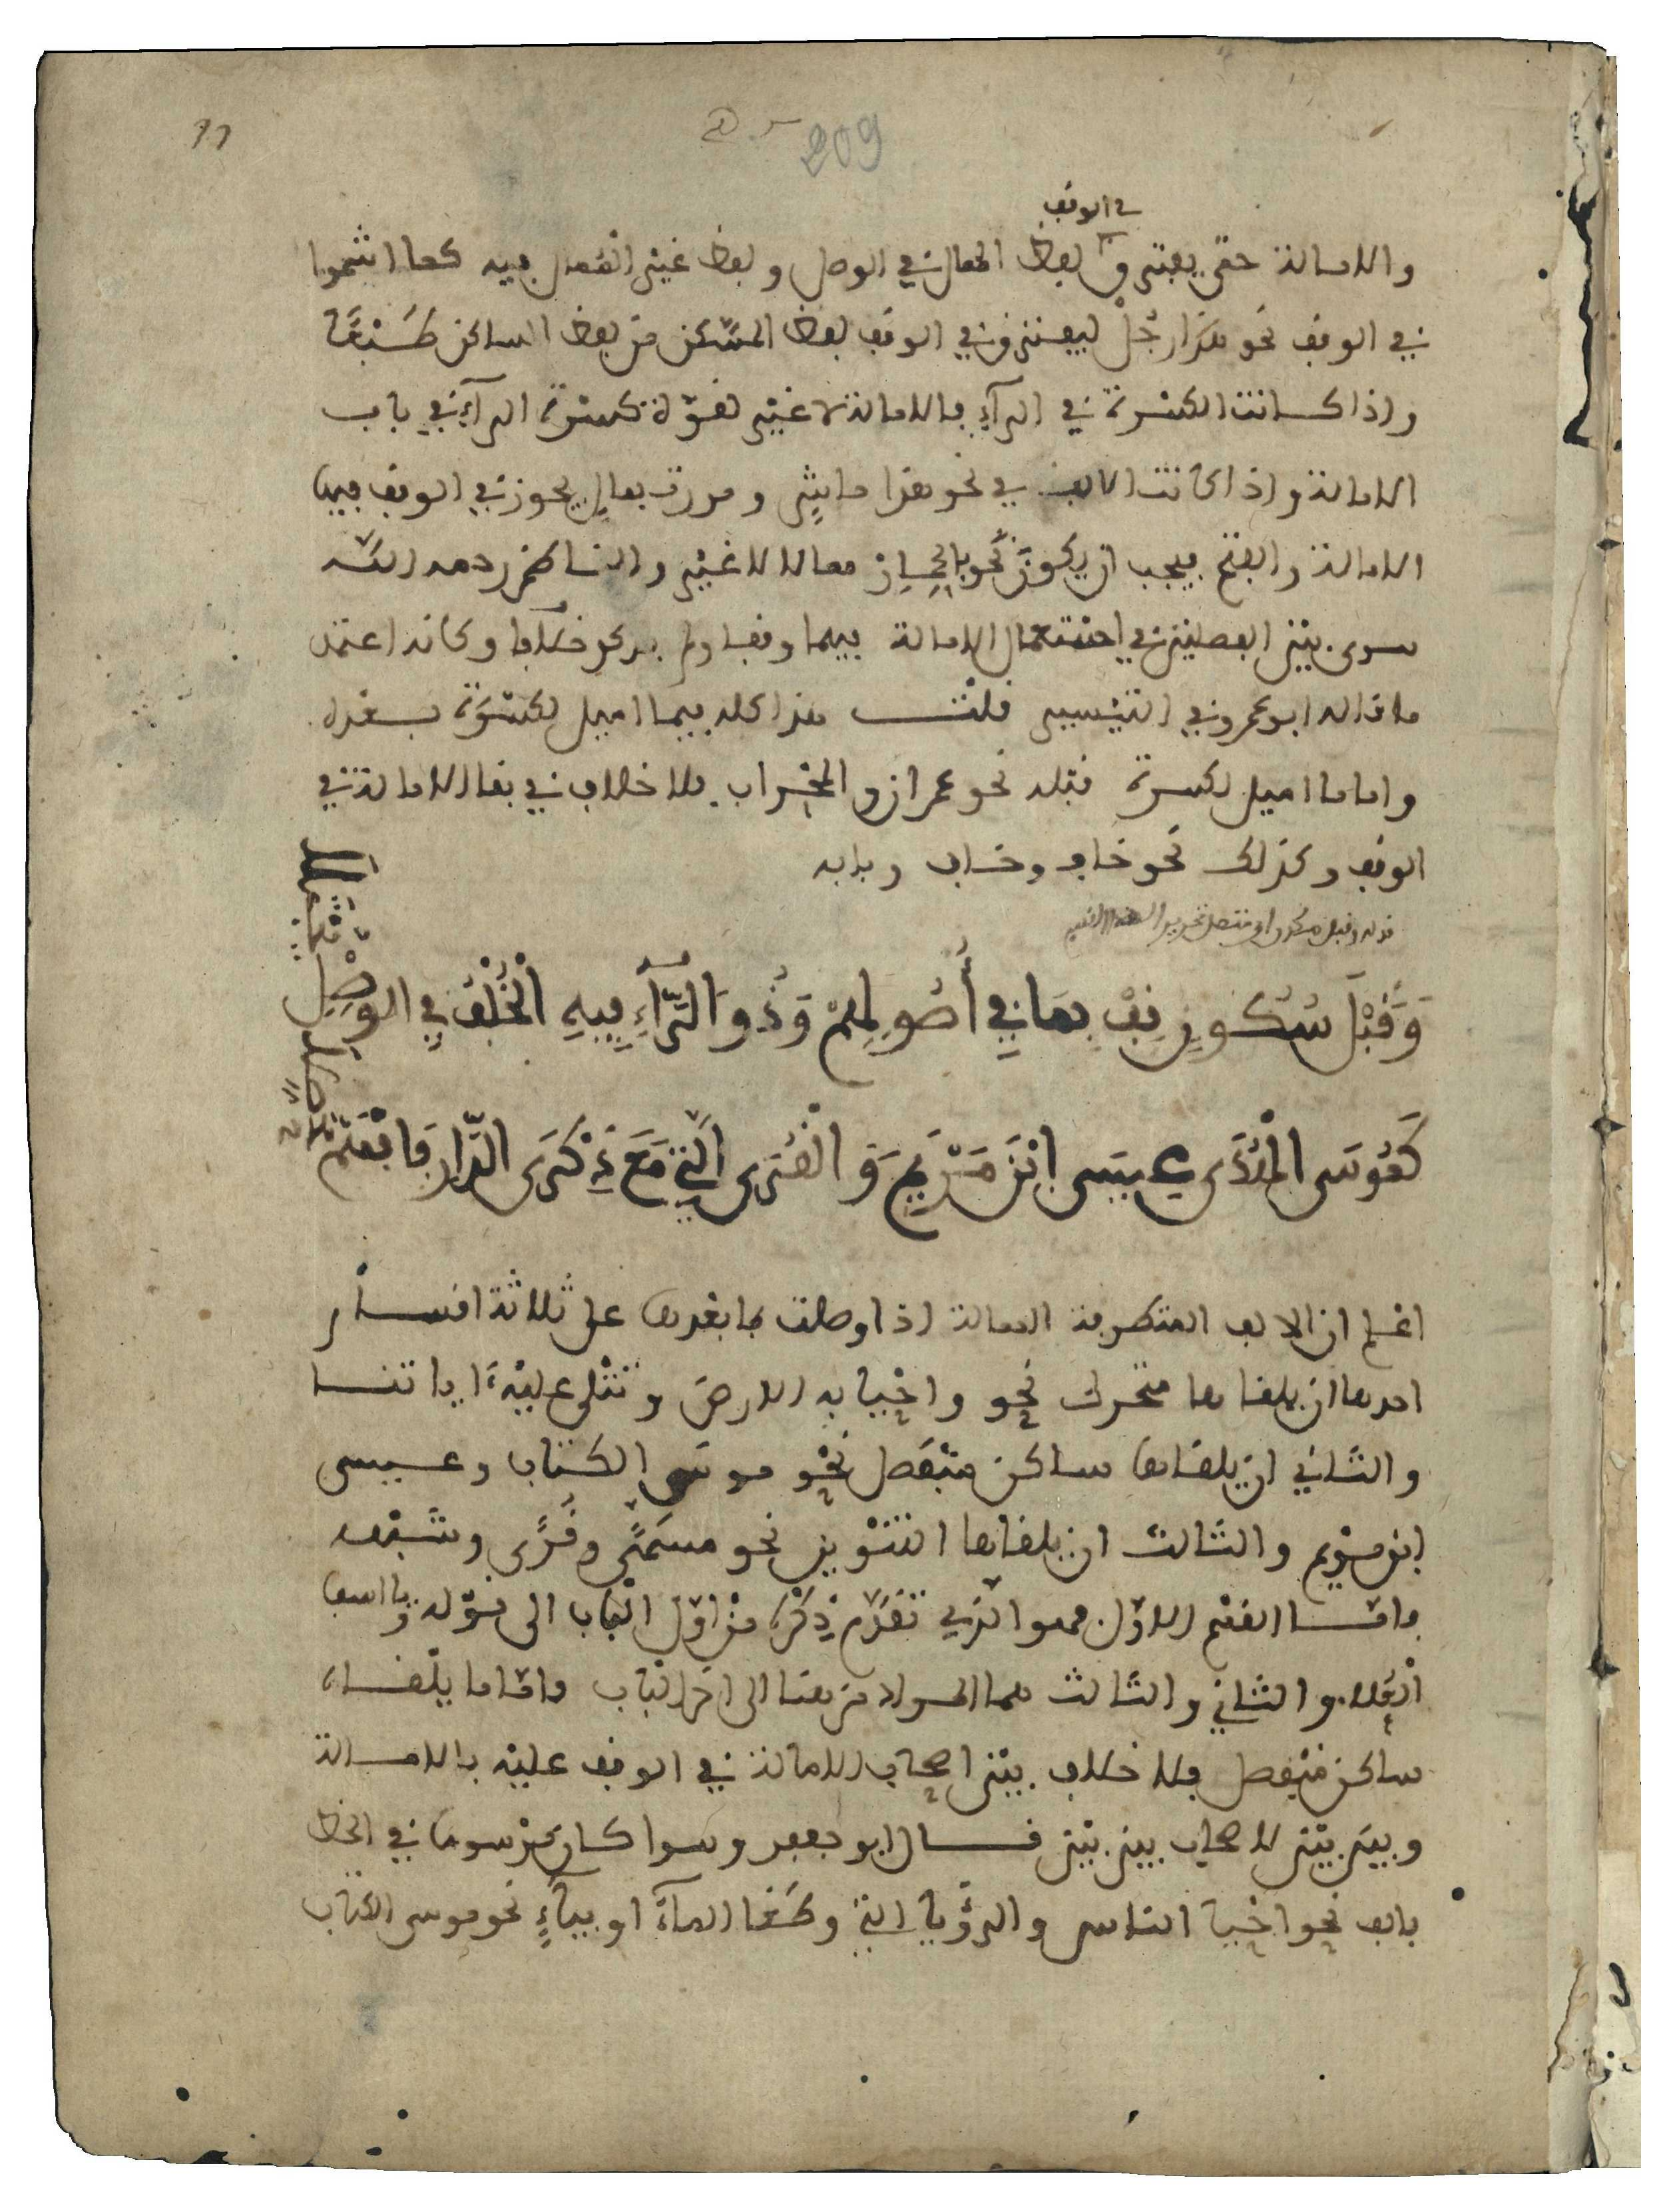 11
209
في الوقف
والامالة حتى يفترق لفظ الممال في الوصل ولفظ غير الممال فيه كما اشموا
في الوقف نحو هذا رجل ليفترق في الوقف لفظ المسكن من لفظ الساكن
واذا كانت الكسرة في الرآء فالامالة لا غير لقوة كسرة الرآء في باب
الامالة واذا كانت الالف في نحو هذا ومررت بمال يجوز في الوقف فيها
الامالة والفتح فيجب ان يكون نحو ممالا لا غير والناظم رحمه الله
سوى بين الفصلين في احتمال الامالة فيهما وقفا ولم يذكر خلافا وكانه اعتمد
ما قاله ابو عمرو في التيسير قلت هذا كله فيما اميل لكسرة بعده
واما ما اميل لكسرة قبله نحو عمران والمحراب فلا خلاف في بقا الامالة في
الوقف وكذلك نحو خاف وخاب وبابه
قوله وقبل سكون
وَقَبْلَ سُكُونٍ قِفْ بِمَا فِي أُصُولِهِمْ وَذُو الرَّآءِ فِيهِ الْخُلْفُ فِي الوَصْلِ يُجْتَلَا
كَمُوسَى الْهُدَى عِيسَى ابْنِ مَرْيَمَ وَالْقُرَى الَّتِي مَعَ ذِكْرَى الدَّارِ فَافْهَمْ مُحَصِّلَا
اعلم ان الالف المتطرفة الممالة اذا وصلت بما بعدها على ثلاثة اقسام
احدها ان يلقاها متحرك نحو واحيا به الارض وتتلى عليه ءاياتنا
والثاني ان يلقاها ساكن منفصل نحو موسى الكتاب وعيسى
ابن مريم والثالث ان يلقاها التنوين نحو مسمًّى وقرًى وشبهه
فامّا القسم الاوّل فهو الذي تقدّم ذكره من اوّل الباب الى قوله ويا اسفى
العُلا والثاني والثالث هما من هنا الى اخر الباب وامّا ما يلقاه
ساكن منفصل فلا خلاف بين اصحاب الامالة في الوقف عليه بالامالة
وبين بين لاصحاب بين بين قال ابو جعفر وسوا كان مرسوما في الخط
بالف نحو احيا الناس والرؤيا التي وطغا المآء او بيآءٍ نحو موسى الكتاب